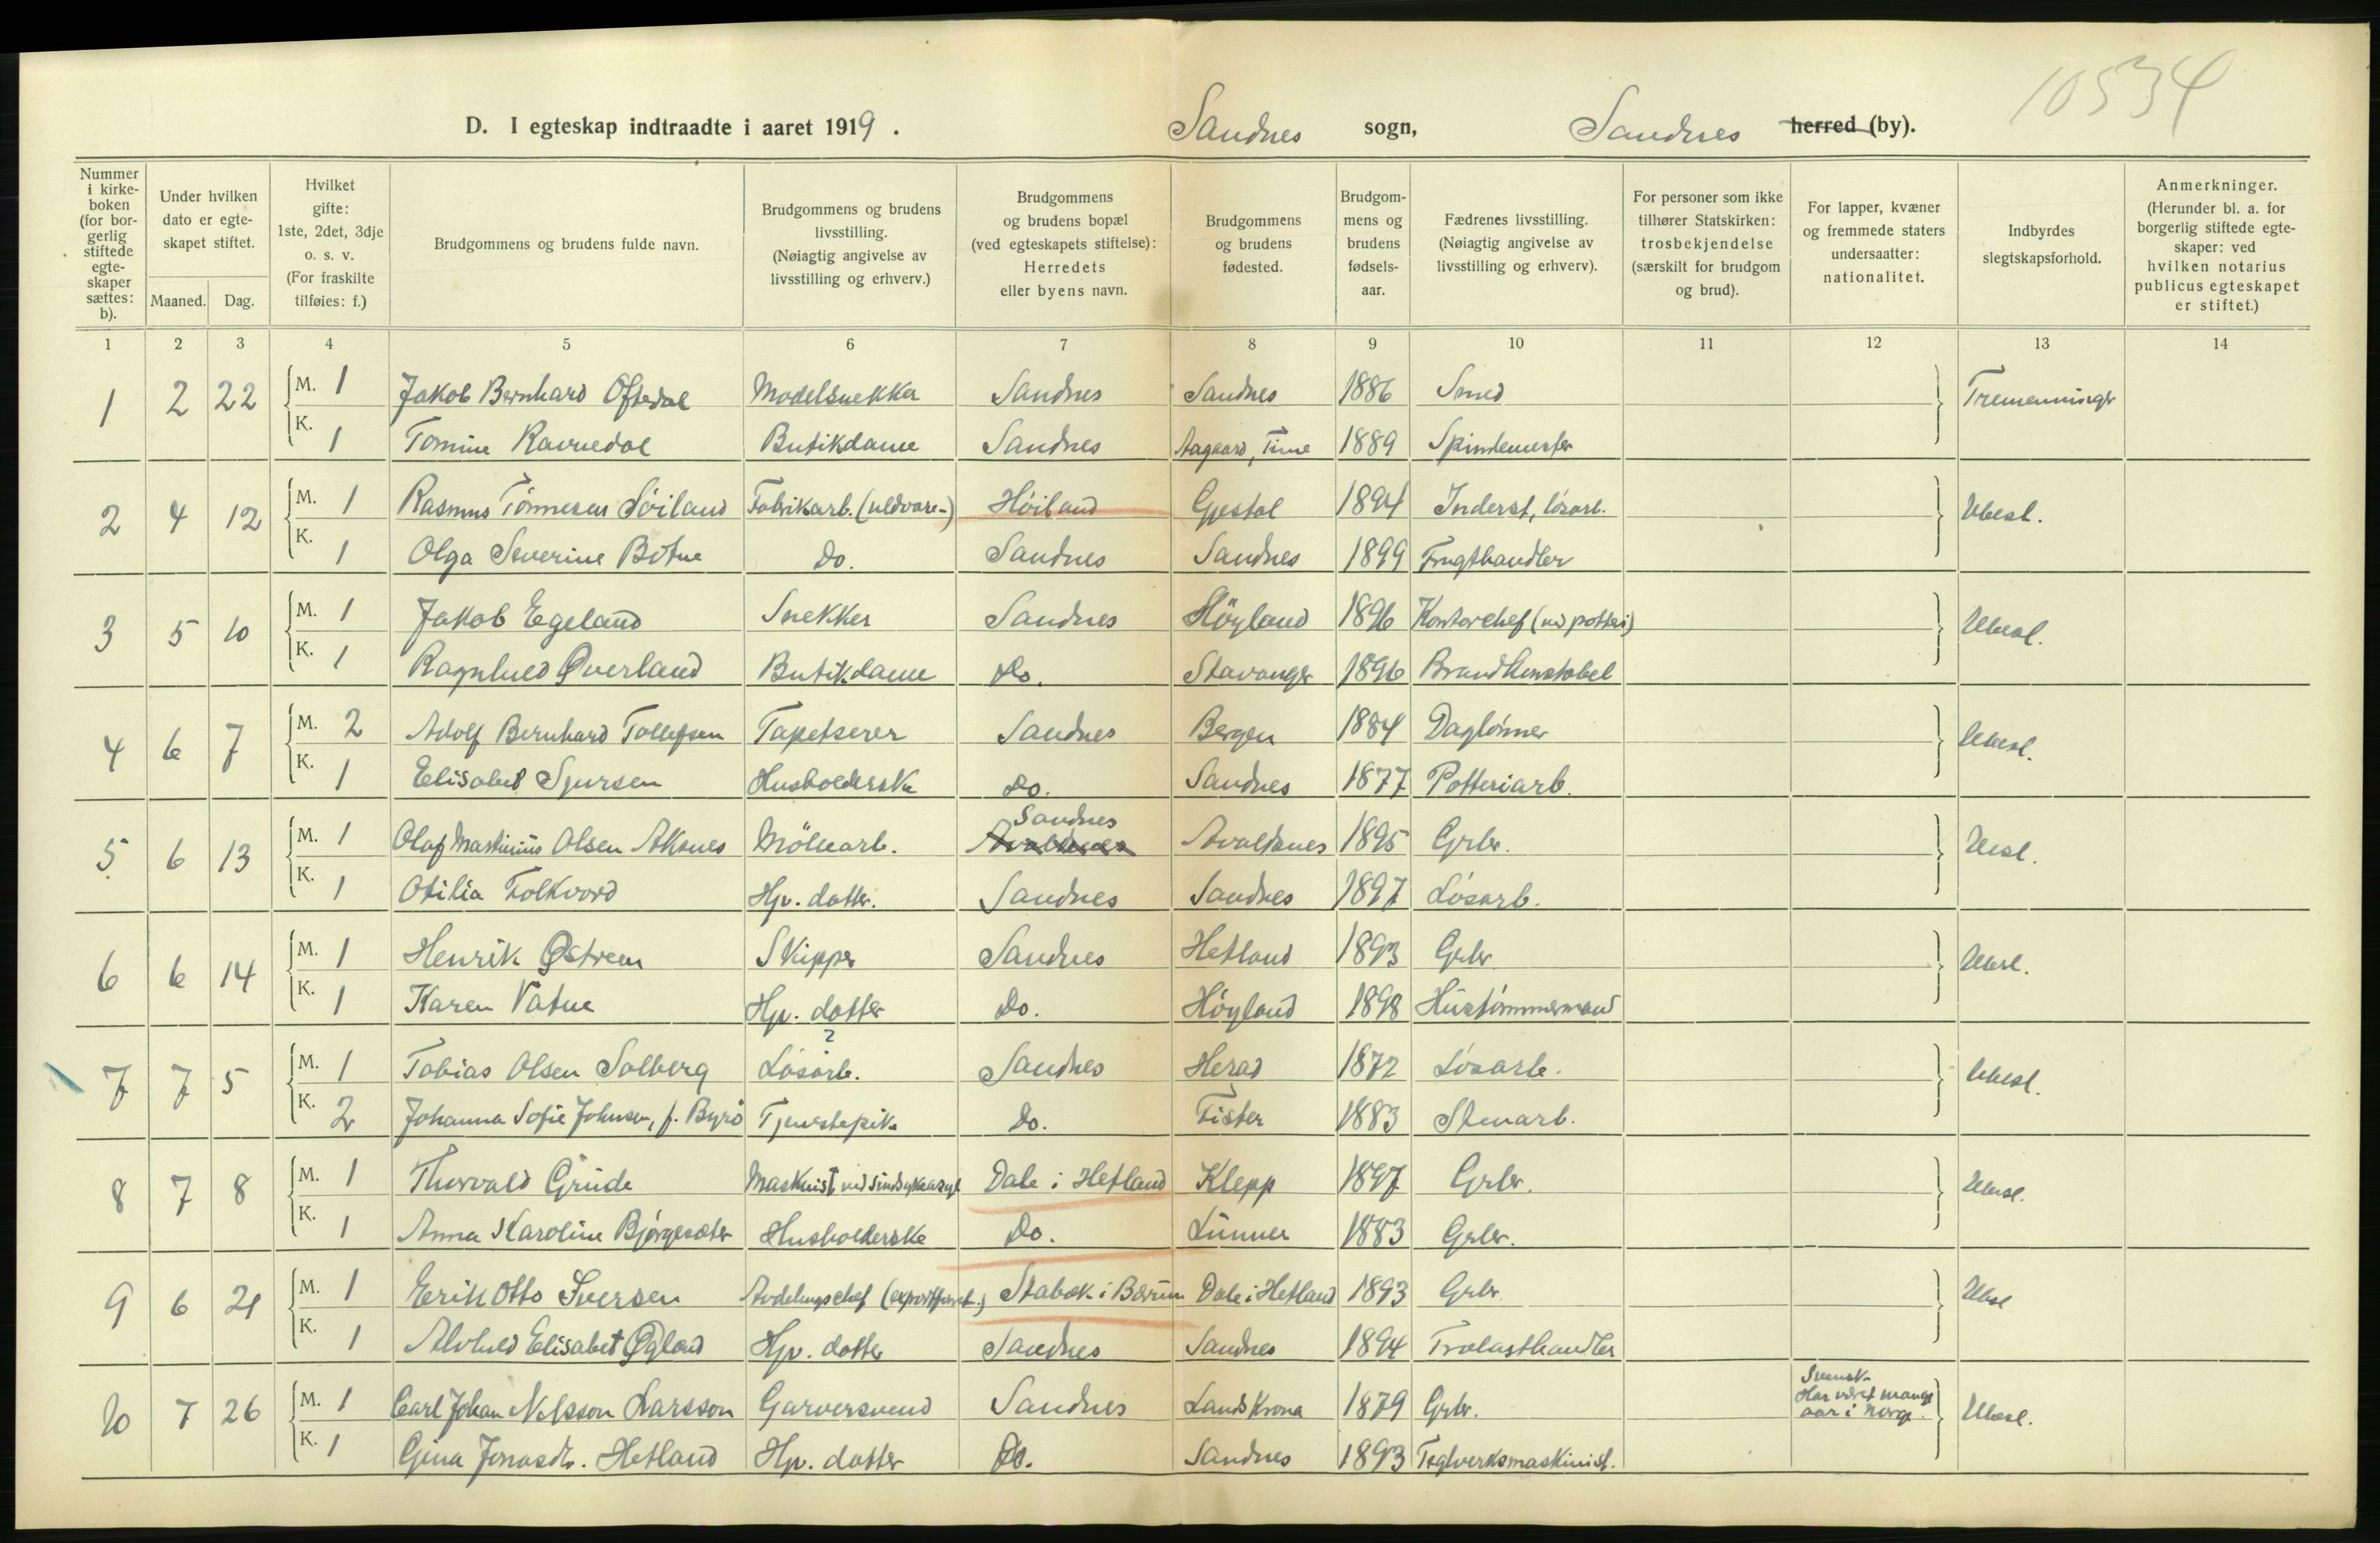 10534
D. I egteskap indtraadte i aaret 1919. Sandnes sogn, Sandnes herred (by).
Nummer i kirkeboken (for borgerlig stiftede egteskaper sættes: b).
Under hvilken dato er egteskapet stiftet.
Maaned. Dag.
Hvilket gifte: 1ste, 2det, 3dje o. s. v. (For fraskilte tilføies: f.)
Brudgommens og brudens fulde navn.
Brudgommens og brudens livsstilling. (Nøiagtig angivelse av livsstilling og erhverv.)
Brudgommens og brudens bopæl (ved egteskapets stiftelse): Herredets eller byens navn.
Brudgommens og brudens fødested.
Brudgommens og brudens fødselsaar.
Fædrenes livsstilling. (Nøiagtig angivelse av livsstilling og erhverv).
For personer som ikke tilhører Statskirken: trosbekjendelse (særskilt for brudgom og brud).
For lapper, kvæner og fremmede staters undersaatter: nationalitet.
Indbyrdes slegtskapsforhold.
Anmerkninger. (Herunder bl. a. for borgerlig stiftede egteskaper: ved hvilken notarius publicus egteskapet er stiftet.)
1 2 3 4 5 6 7 8 9 10 11 12 13 14
1 2 22 M. 1 Jakob Bernhard Oftedal Modelsnekker Sandnes Sandnes 1886 Smed Tremenninger
K. 1 Tomine Ravnedal Butikdame Sandnes Aagaard, Time 1889 Spindemester
2 4 12 M. 1 Rasmus Tönnesen Söiland Fabrikarb. (uldvare-) Höiland Gjestal 1894 Inderst, lösarb. Ubesl.
K. 1 Olga Severine Botne Do. Sandnes Sandnes 1899 Frugthandler
3 5 10 M. 1 Jakob Egeland Snekker Sandnes Höyland 1896 Kontorchef (ved potteri) Ubesl.
K. 1 Ragnhild Øverland Butikdame Do. Stavanger 1896 Brandkonstabel
4 6 7 M. 2 Adolf Bernhard Tollefsen Tapetserer Sandnes Bergen 1884 Daglönner Ubesl.
K. 1 Elisabet Sjursen Husholderske Do. Sandnes 1877 Potteriarb.
5 6 13 M. 1 Olaf Martinius Olsen Aksnes Möllearb. Sandnes Avaldsnes Avaldsnes 1895 Grbr. Ubesl.
K. 1 Otilia Folkvord Hjv. datter. Sandnes Sandnes 1897 Lösarb.
6 6 14 M. 1 Henrik Østrem Skipper Sandnes Hetland 1893 Grbr. Ubesl.
K. 1 Karen Vatne Hjv. datter Do. Höyland 1898 Hustömmermand
7 7 5 M. 1 Tobias Olsen Solberg Lösarb. ? Sandnes Herad 1872 Lösarb. Ubesl.
K. 2 Johanna Sofie Johnsen, f. Byrö Tjenestepike Do. Fister 1883 Stenarb.
8 7 8 M. 1 Thorvald Grude Maskinist ved sindsykeasyl Dale i Hetland Klepp 1897 Grbr. Ubesl.
K. 1 Anna Karoline Bjørgesæter Husholderske Do. Lunner 1883 Grbr.
9 6 21 M. 1 Erik Otto Iversen Avdelingschef (exportforret.) Stabæk i Bærum Dale i Hetland 1893 Grbr. Ubsl
K. 1 Alvhild Elisabet Øglænd Hjv. datter Sandnes Sandnes 1894 Trælasthandler
10 7 26 M. 1 Carl Johan Nilsson Larsson Garversvend Sandnes Landskrona 1879 Grbr. Svensk. Har været mange aar i Norge. Ubesl.
K. 1 Gina Jonasdtr. Hetland Hjv. datter Do. Sandnes 1893 Teglverksmaskinist.